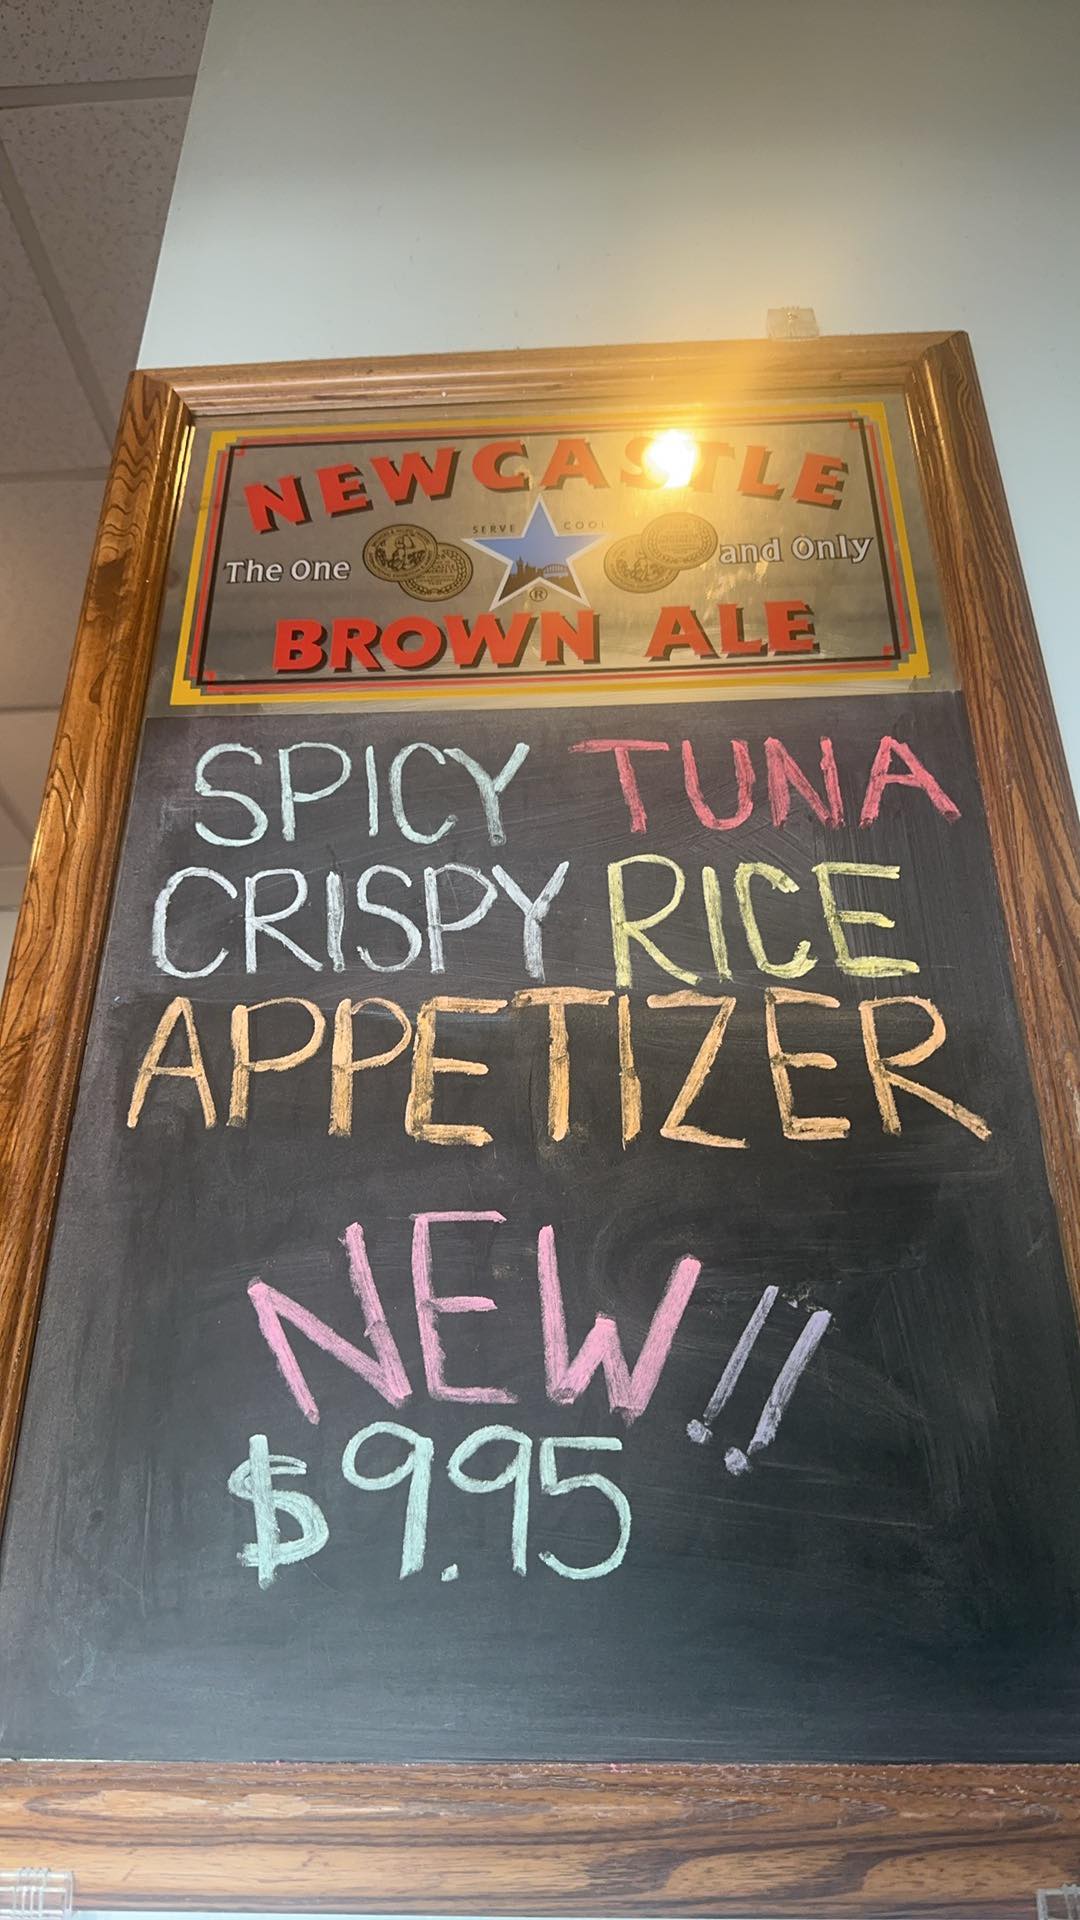 NEWCASTLE
SERVE COOL
The One and Only
®
BROWN ALE
SPICY TUNA
CRISPY RICE
APPETIZER
NEW!!
$9.95